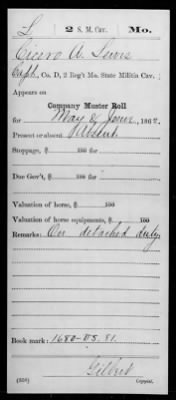 L 2 S. M. Cav. Mo.
Cicero A. Lewis
Capt., Co. D, 2 Reg't Mo. State Militia Cav.
Appears on
Company Muster Roll
for May & June, 1862.
Present or absent Absent
Stoppage, $ 100 for
Due Gov't, $ 100 for
Valuation of horse, $ 100
Valuation of horse equipments, $ 100
Remarks: On detached duty.
Book mark: 1680-VS. 81.
Gilbert
(358) Copyist.